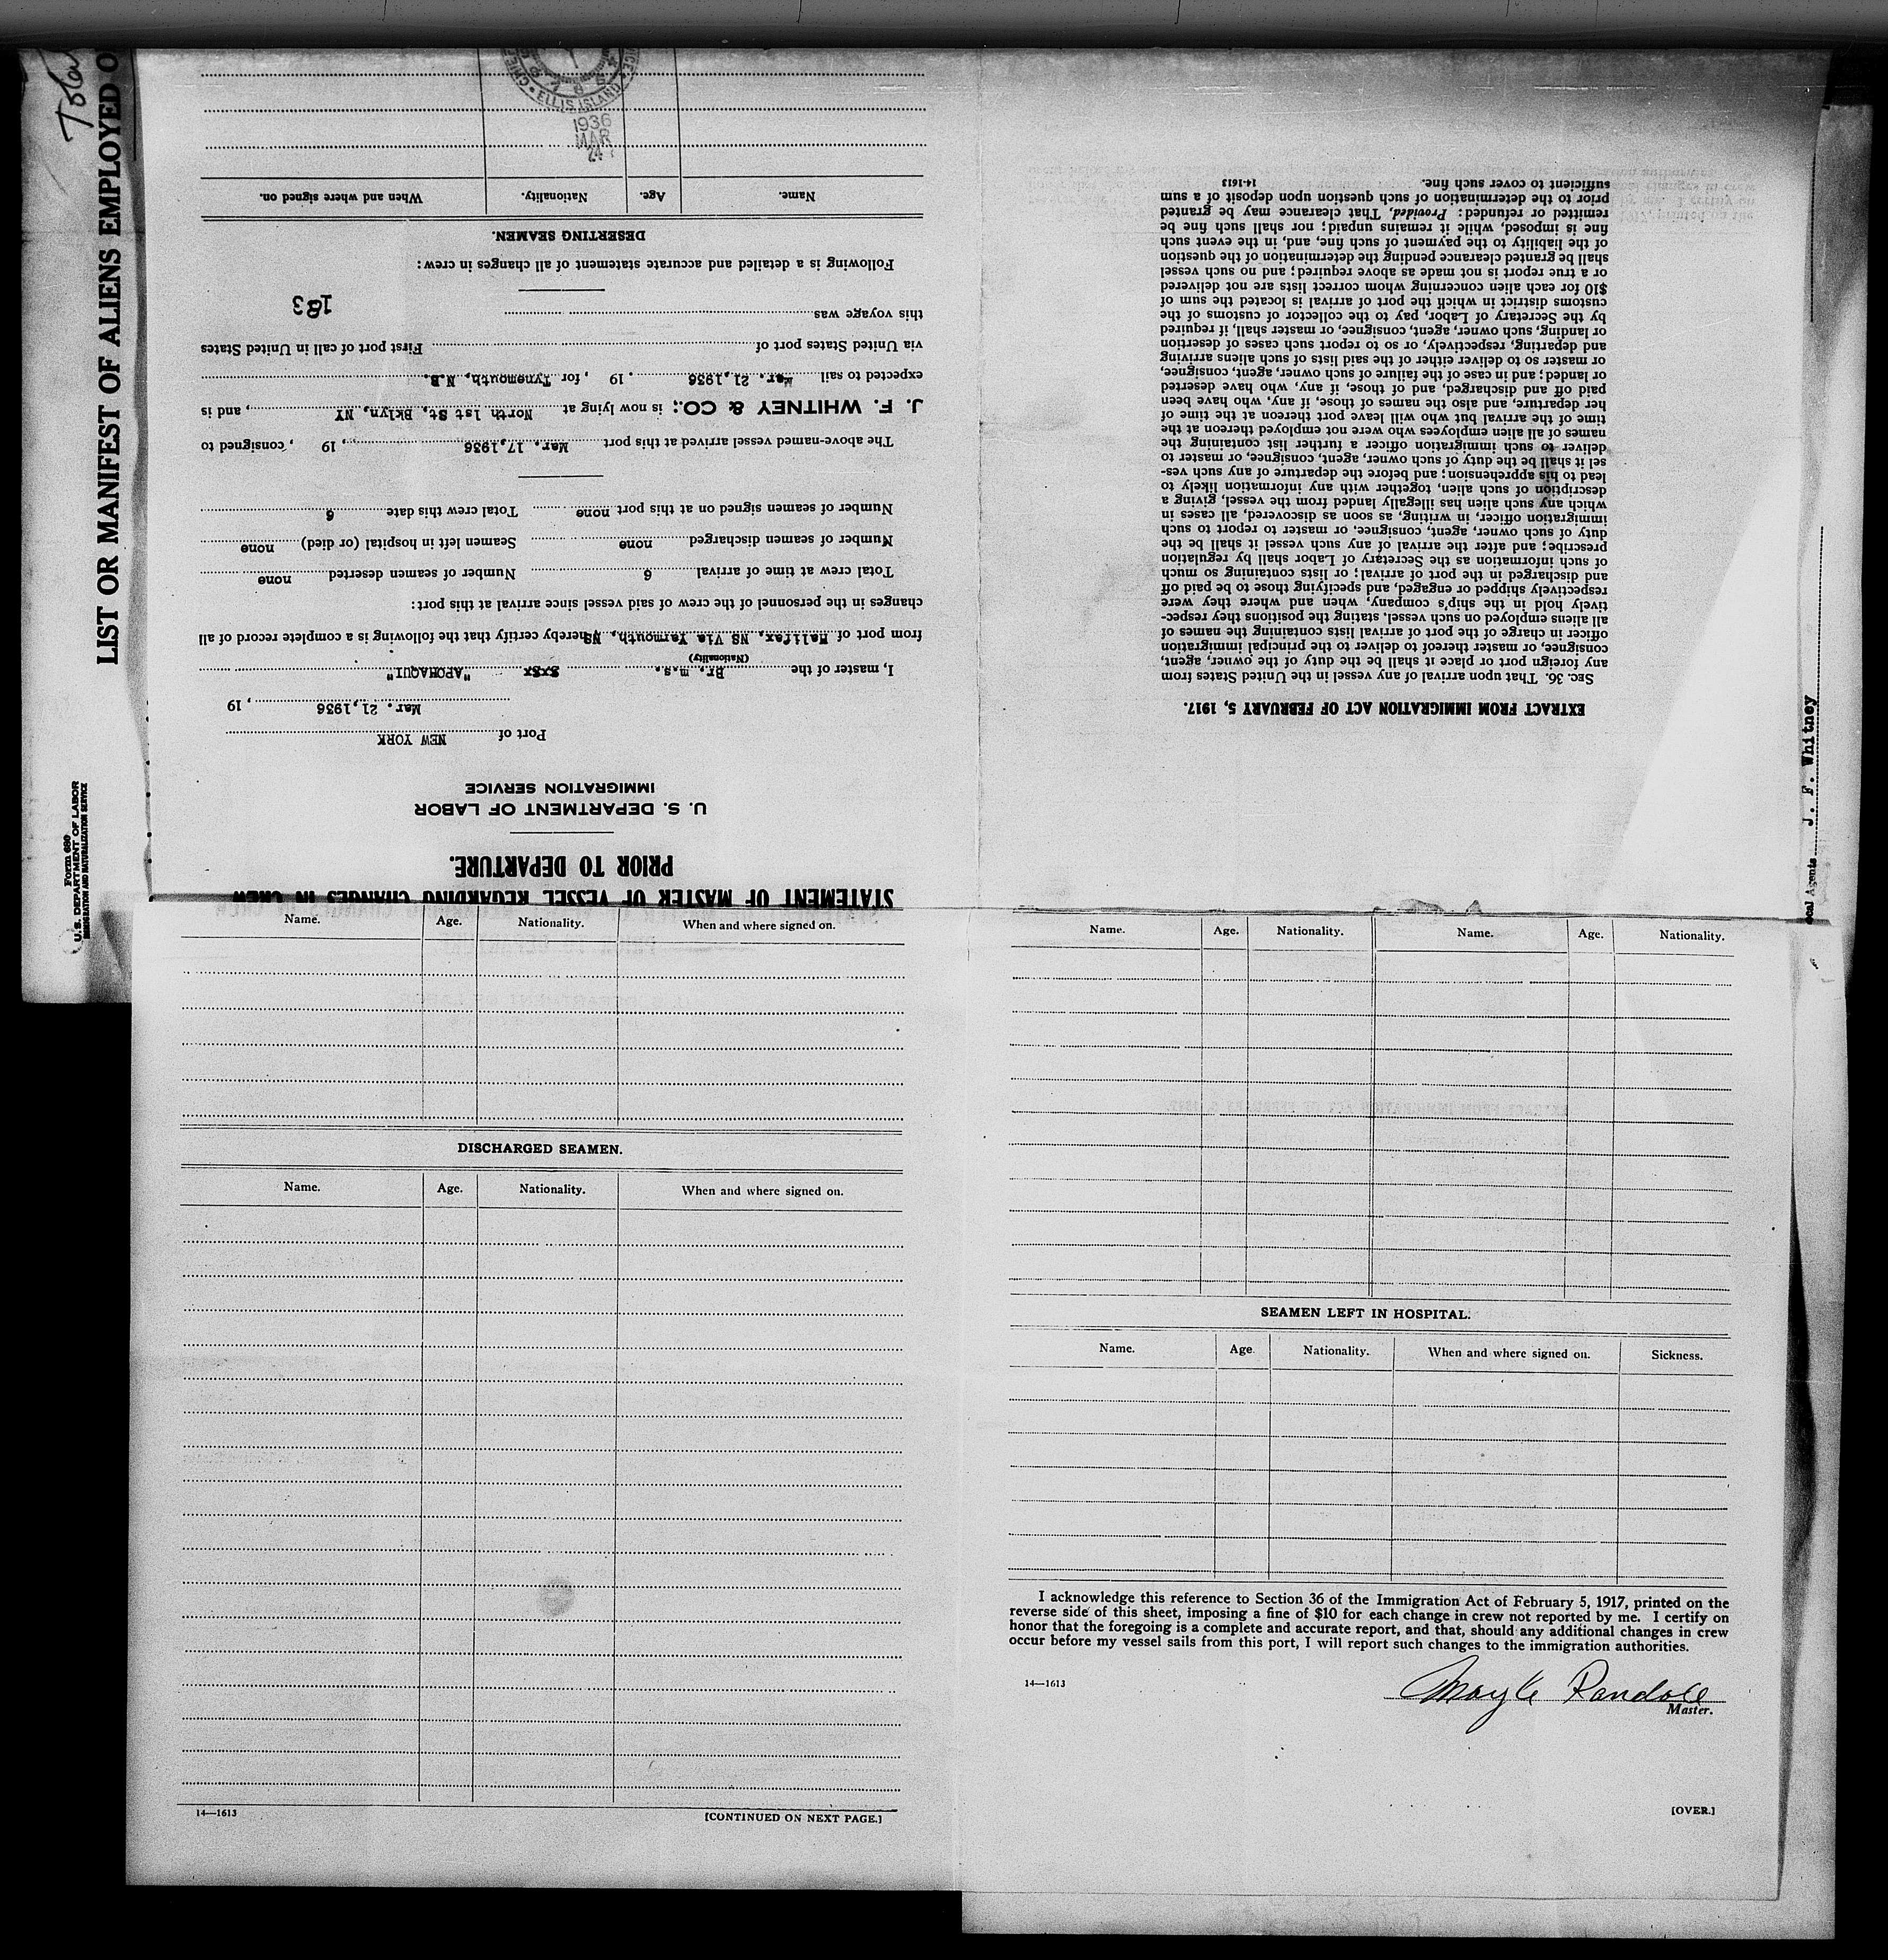 STATEMENT OF MASTER OF VESSEL REGARDING CHANGES IN CREW
PRIOR TO DEPARTURE.
U. S. DEPARTMENT OF LABOR
IMMIGRATION SERVICE
Port of NEW YORK
Mar. 21,1936, 19
I, master of the Br. m.s. "APOHAQUI"
(Nationality)
from port of Halifax, NS Via Yarmouth, NS hereby certify that the following is a complete record of all
changes in the personnel of the crew of said vessel since arrival at this port:
Total crew at time of arrival 6 Number of seamen deserted none
Number of seamen discharged none Seamen left in hospital (or died) none
Number of seamen signed on at this port none Total crew this date 6
The above-named vessel arrived at this port Mar. 17,1936, 19 , consigned to
J. F. WHITNEY & CO.; is now lying at North 1st St, Bklyn, NY, and is
expected to sail Mar. 21,1936. 19 , for Tynemouth, N.B.
via United States port of First port of call in United States
this voyage was
183
Following is a detailed and accurate statement of all changes in crew:
DESERTING SEAMEN.
Name. Age. Nationality. When and where signed on.
ELLIS ISLAND
1936
MAR
24
EXTRACT FROM IMMIGRATION ACT OF FEBRUARY 5, 1917.
SEC. 36. That upon arrival of any vessel in the United States from
any foreign port or place it shall be the duty of the owner, agent,
consignee, or master thereof to deliver to the principal immigration
officer in charge of the port of arrival lists containing the names of
all aliens employed on such vessel, stating the positions they respec-
tively hold in the ship's company, when and where they were
respectively shipped or engaged, and specifying those to be paid off
and discharged in the port of arrival; or lists containing so much
of such information as the Secretary of Labor shall by regulation
prescribe; and after the arrival of any such vessel it shall be the
duty of such owner, agent, consignee, or master to report to such
immigration officer, in writing, as soon as discovered, all cases in
which any such alien has illegally landed from the vessel, giving a
description of such alien, together with any information likely to
lead to his apprehension; and before the departure of any such ves-
sel it shall be the duty of such owner, agent, consignee, or master to
deliver to such immigration officer a further list containing the
names of all alien employees who were not employed thereon at the
time of the arrival but who will leave port thereon at the time of
her departure, and also the names of those, if any, who have been
paid off and discharged, and of those, if any, who have deserted
or landed; and in case of the failure of such owner, agent, consignee,
or master so to deliver either of the said lists of such aliens arriving
and departing, respectively, or so to report such cases of desertion
or landing, such owner, agent, consignee, or master shall, if required
by the Secretary of Labor, pay to the collector of customs of the
customs district in which the port of arrival is located the sum of
$10 for each alien concerning whom correct lists are not delivered
or a true report is not made as above required; and no such vessel
shall be granted clearance pending the determination of the question
of the liability to the payment of such fine, and, in the event such
fine is imposed, while it remains unpaid; nor shall such fine be
remitted or refunded: Provided, That clearance may be granted
prior to the determination of such question upon deposit of a sum
sufficient to cover such fine.
14-1613
LIST OR MANIFEST OF ALIENS EMPLOYED O
Form 680
U. S. DEPARTMENT OF LABOR
IMMIGRATION AND NATURALIZATION SERVICE
ocal Agents J. F. Whitney
Name. Age. Nationality. When and where signed on.
DISCHARGED SEAMEN.
Name. Age. Nationality. When and where signed on.
14—1613 [CONTINUED ON NEXT PAGE.]
Name. Age. Nationality. Name. Age. Nationality.
SEAMEN LEFT IN HOSPITAL.
Name. Age. Nationality. When and where signed on. Sickness.
I acknowledge this reference to Section 36 of the Immigration Act of February 5, 1917, printed on the
reverse side of this sheet, imposing a fine of $10 for each change in crew not reported by me. I certify on
honor that the foregoing is a complete and accurate report, and that, should any additional changes in crew
occur before my vessel sails from this port, I will report such changes to the immigration authorities.
14—1613
Randall
Master.
[OVER.]